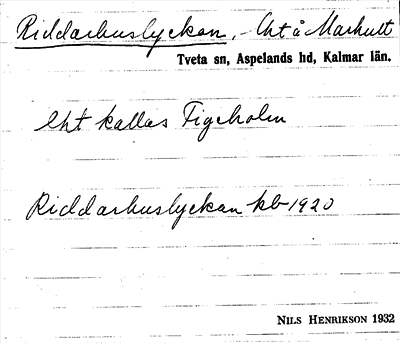 Riddarhuslyckan, - Lht å Markutt
Tveta sn, Aspelands hd, Kalmar län.
Lht kallas Figeholm
Riddarhuslyckan kb 1920
NILS HENRIKSON 1932